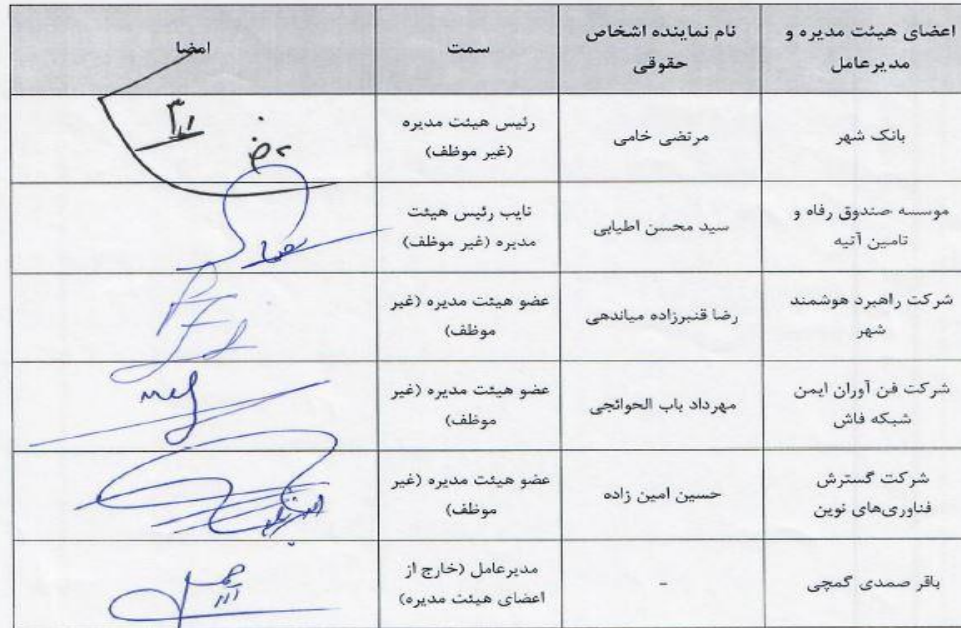 اعضای هیئت مدیره و
مدیرعامل
نام نماینده اشخاص
حقوقی
سمت
امضا
بانک شهر
مرتضی خامی
رئیس هیئت مدیره
(غیر موظف)
موسسه صندوق رفاه و
تامین آتیه
سید محسن اطیابی
نایب رئیس هیئت
مدیره (غیر موظف)
شرکت راهبرد هوشمند
شهر
رضا قنبرزاده میاندهی
عضو هیئت مدیره (غیر
موظف)
شرکت فن آوران ایمن
شبکه فاش
مهرداد باب الحوائجی
عضو هیئت مدیره (غیر
موظف)
شرکت گسترش
فناوری‌های نوین
حسین امین زاده
عضو هیئت مدیره (غیر
موظف)
باقر صمدی گمچی
-
مدیرعامل (خارج از
اعضای هیئت مدیره)